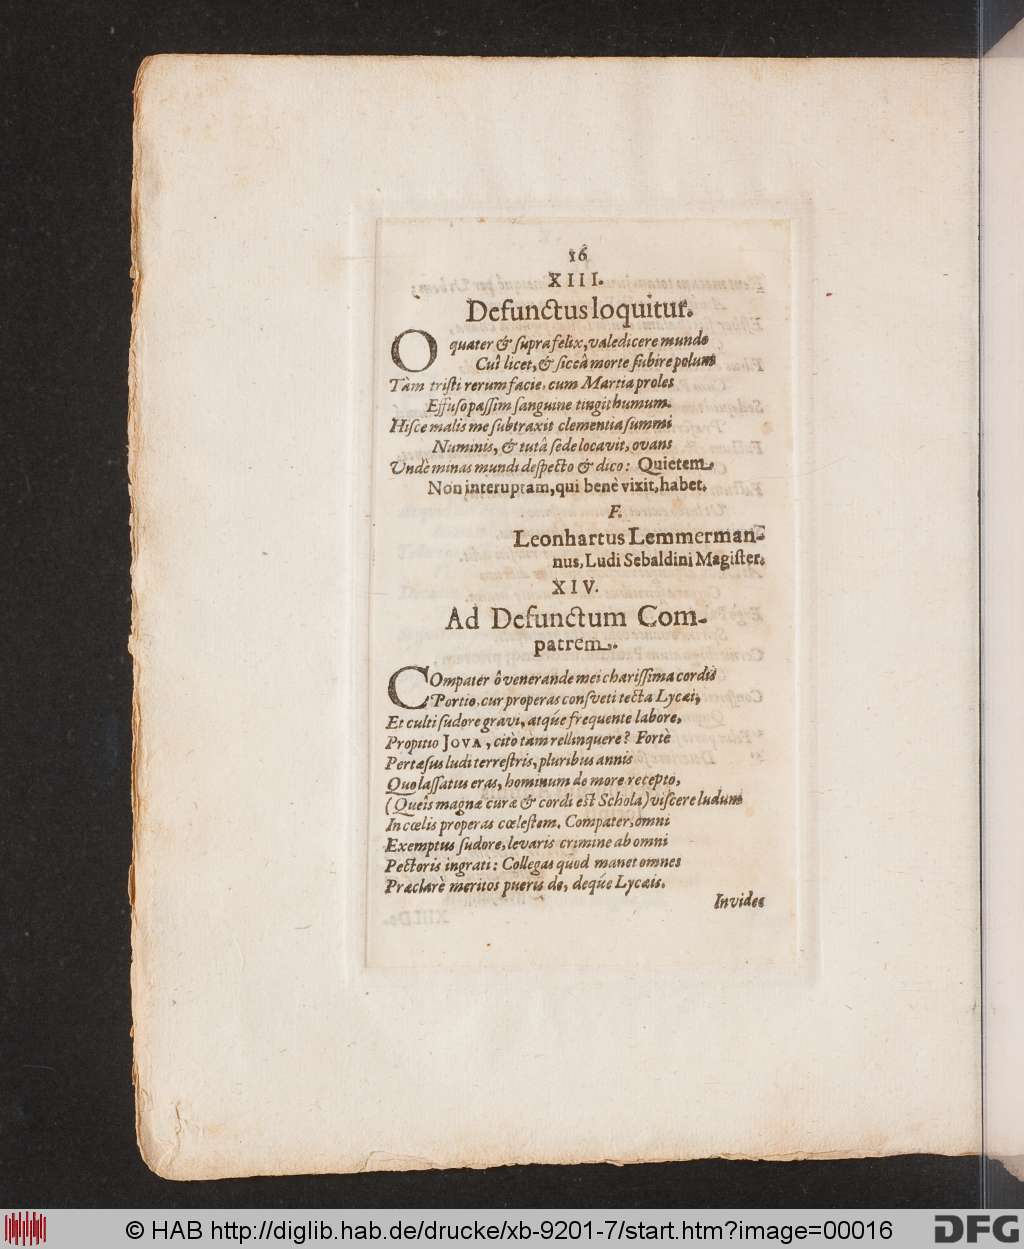 16
XIII.
Defunctus loquitur.
O quater & supra felix, valedicere mundo
Cui licet, & siccâ morte subire polum
Tàm tristi rerum facie, cum Martia proles
Effuso passim sanguine tingit humum.
Hisce malis me subtraxit clementia summi
Numinis, & tutâ sede locavit, ovans
Undè minas mundi despecto & dico: Quietem
Non interuptam, qui benè vixit, habet.
F.
Leonhartus Lemmerman-
nus, Ludi Sebaldini Magister.
XIV.
Ad Defunctum Com-
patrem.
COmpater ô venerande mei charissima cordis
Portio, cur properas consveti tecta Lycæi,
Et culti sudore gravi, atq́ue frequente labore,
Propitio JOVA, citò tàm rellinquere? Fortè
Pertæsus ludi terrestris, pluribus annis
Quo lassatus eras, hominum de more recepto,
(Queîs magnæ curæ & cordi est Schola) viscere ludum
In cœlis properas cœlestem. Compater, omni
Exemptus sudore, levaris crimine ab omni
Pectoris ingrati: Collegas quod manet omnes
Præclarè meritos pueris de, deq́ue Lycæis.
Invidet
© HAB http://diglib.hab.de/drucke/xb-9201-7/start.htm?image=00016
DFG